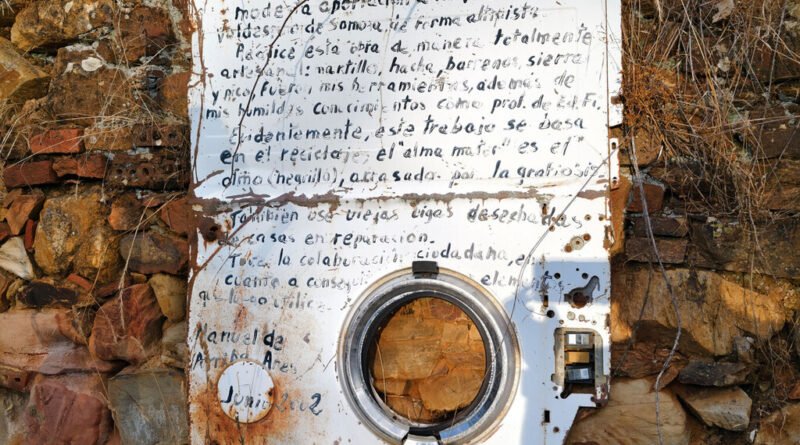 modesta aportación a
Valdespino de Somoza de forma altruista.
Realicé esta obra de manera totalmente
artesanal: martillo, hacha, barrenas, sierra
y pico, fueron mis herramientas, además de
mis humildes conocimientos como prof. de Ed. Fi.
Evidentemente, este trabajo se basa
en el reciclaje; el "alma mater" es el
olmo (negrillo), arrasado por la grafiosis
También usé viejas vigas desechadas
de casas en reparación.
Tuve la colaboración ciudadana, en
cuanto a
que
Manuel de
Arriba Ares
Junio 2002